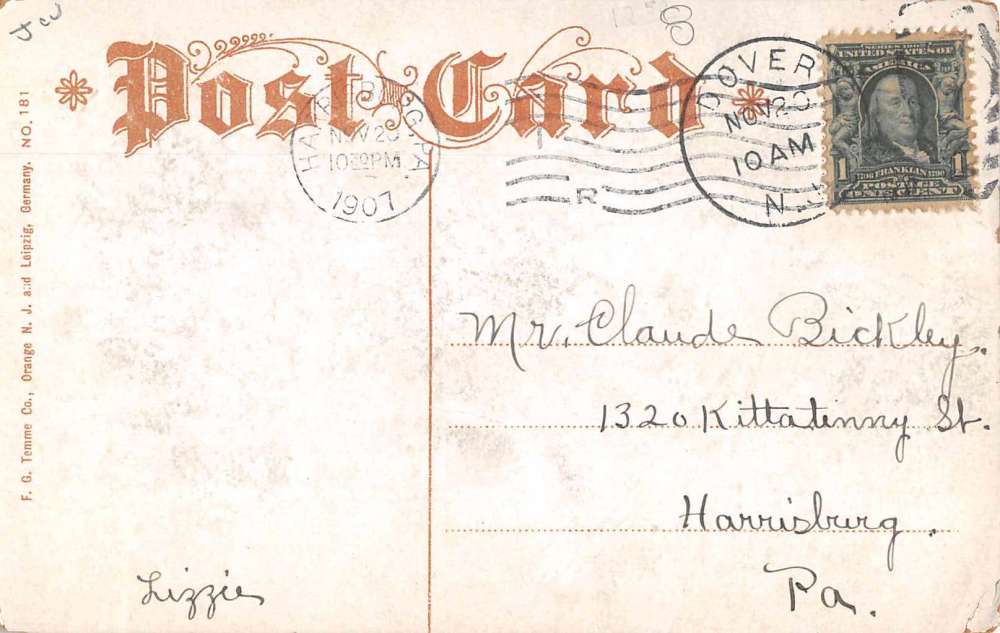 Post Card
HARRISBURG, PA
NOV 20
10 30 PM
1907
R
DOVER
NOV 20
10 AM
N.J.
SERIES 1902
UNITED STATES OF
AMERICA
1 1
1706 FRANKLIN 1790
POSTAGE
ONE CENT
F. G. Temme Co., Orange N. J. and Leipzig, Germany. NO. 181
8
Mr. Claude Bickley.
1320 Kittatinny St.
Harrisburg.
Pa.
Lizzie